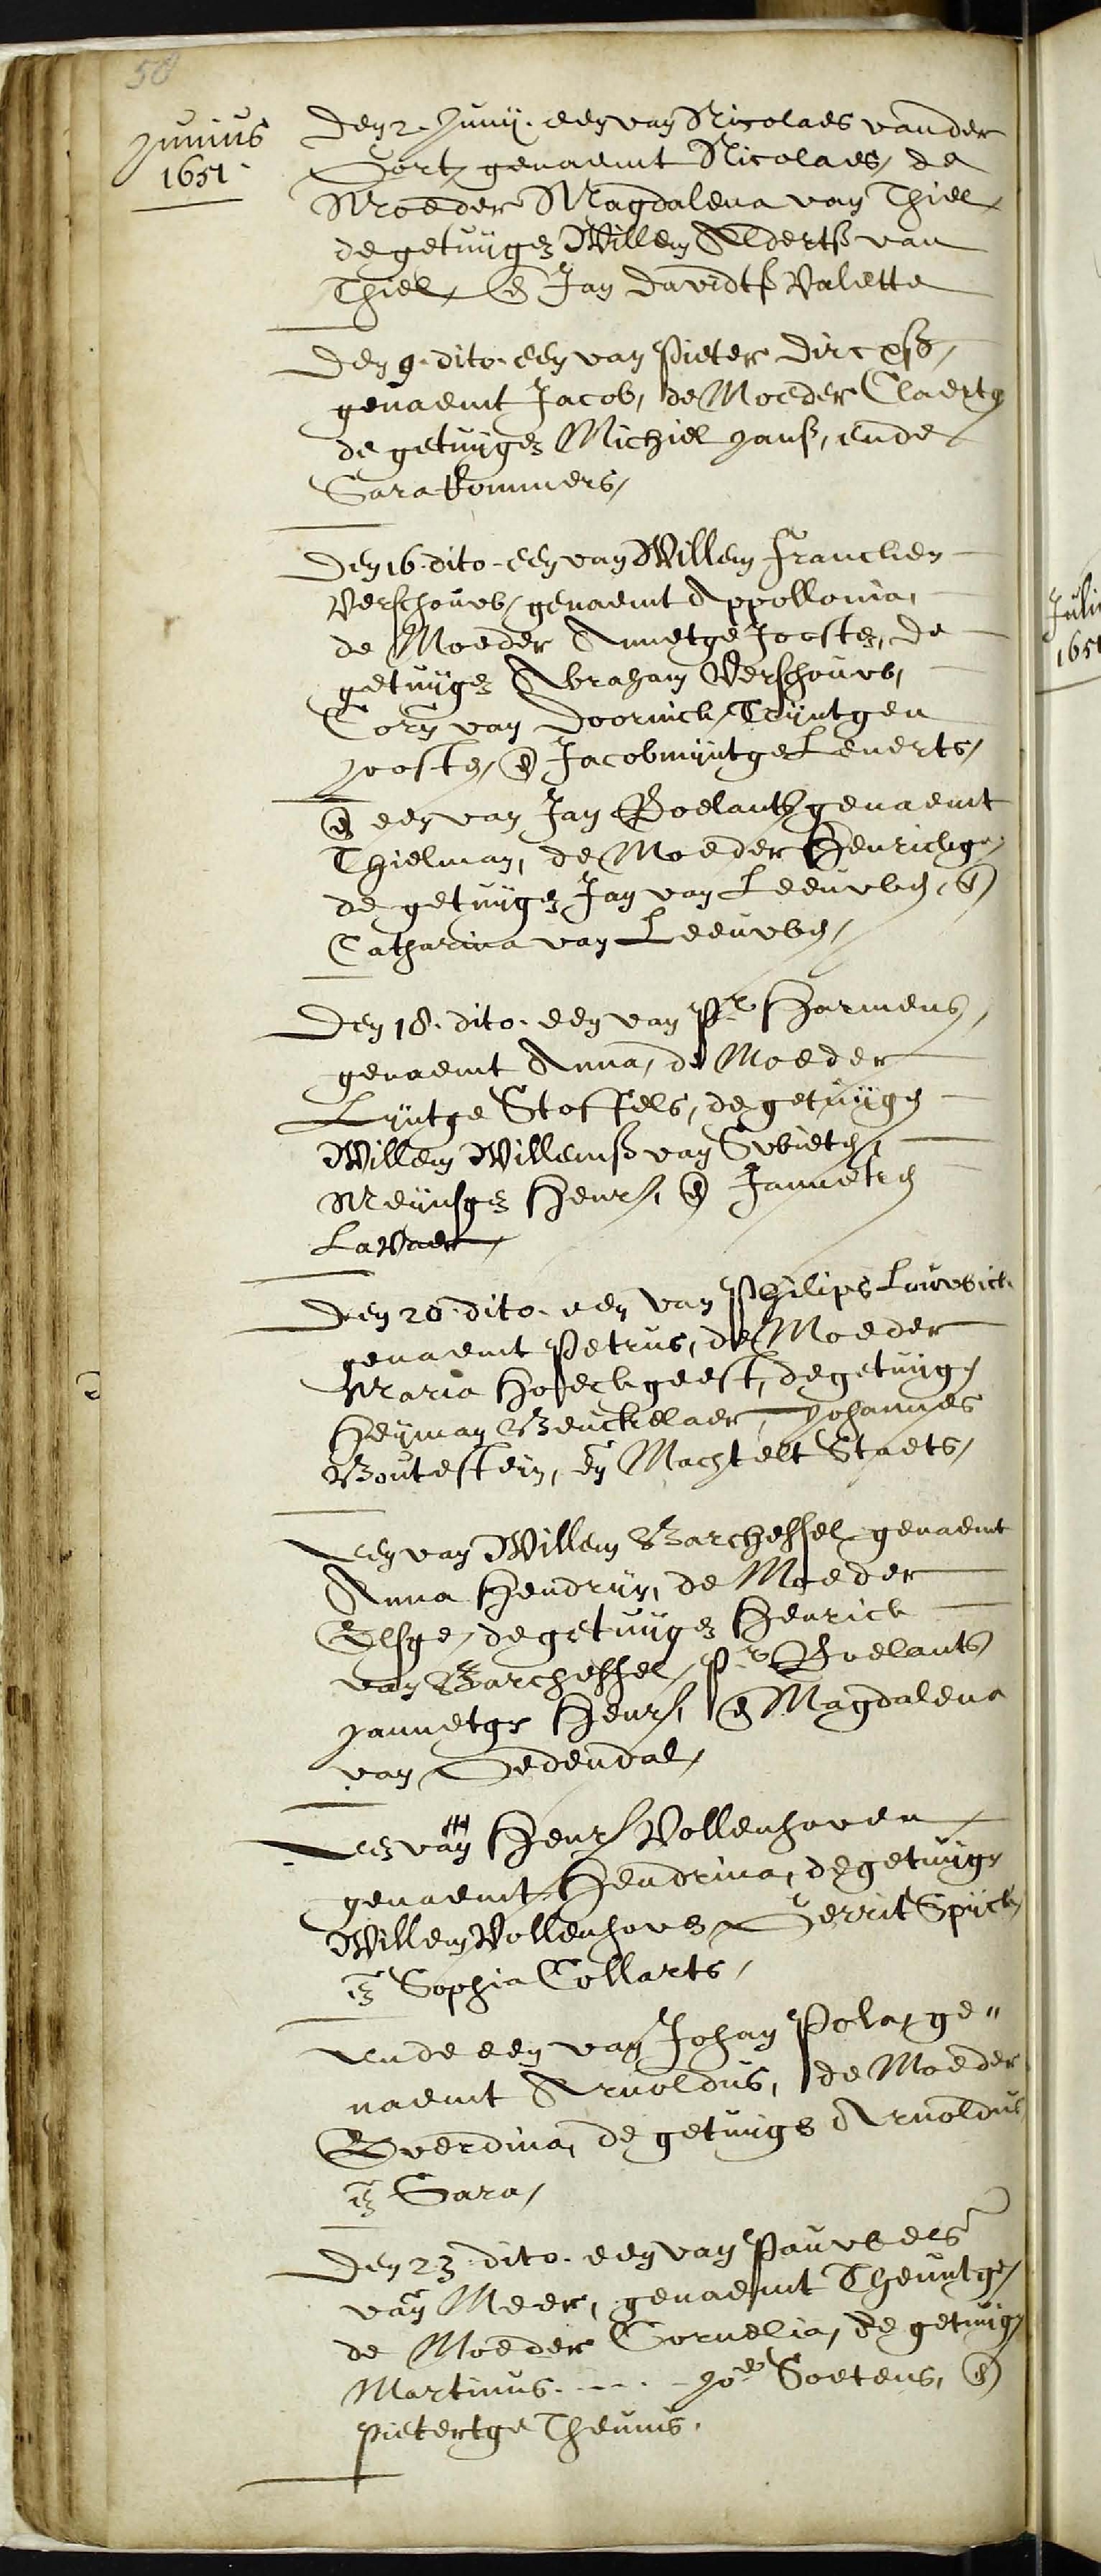 50
Junius
1651.
Den 2. Junij. een van Nicolaes vander
genaemt Nicolaes, de
Moeder Magdalena van Thiel,
de getuijgen Willem Aldertß van
Thiel, en Jan Davidtß Valette
Den 9. dito. een van Pieter Dircxß,
genaemt Jacob, de Moeder Claertge
de getuijgen Michiel Janß, ende
Sara Kommers,
Den 16. dito. een van Willem Francken
Verschouw, genaemt Appollonia,
de Moeder Annetge Joosten, de
getuijgen Abraham Verschouw,
Corn van Doornick, Trijntgen
Joosten, en Jacobmijntge Leuerts,
en een van Jan Roelants genaemt
Thielman, de Moeder Henrickge,
de getuijgen Jan van Leeuwen, en
Catharina van Leeuwen,
Den 18. dito. een van Pr Harmens,
genaemt Anna, de Moeder
Lijntge Stoffels, de getuijgen
Willem Willemß van Swieten,
Meijnsgen Henr, en Jannetie

Den 20. dito. een van Philips Louwick
genaemt Petrus, de Moeder
Maria Hoeckgeest, de getuijgen
Heijman Beuckelaer, Johannes
Boutestein, en Machtelt Staets,
Een van Willem Barchessel genaemt
Anna Hendrijn, de Moeder
Elsge, de getuijgen Henrick
van Barchessel, Pr Roelants
Jannetge Henr, en Magdalena
van Sedendal,
Een van Henr Vollenhoven
genaemt Hendrina, de getuijge
Willem Vollenhoven Gerrit Spijck,
en Sophia Collarts,
Ende een van Johan Pola, ge"
naemt Arnoldus, de Moeder
Everdina, de getuigen Arnoldus
en Sara,
Den 23. dito. een van Pauwels
van Meer, genaemt Theuntge,
de Moeder Cornelia, de getuigen
Martinus. - - . . Soetens, en
Pietertge Theunis.
Juli
1651